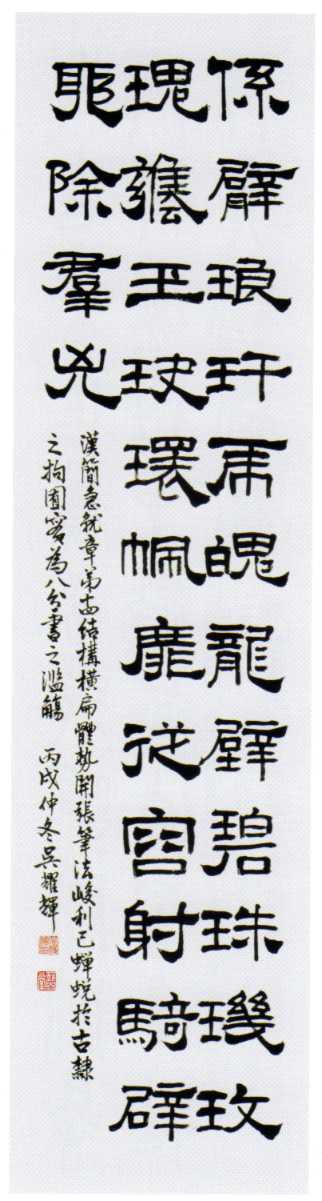 係臂琅玕虎魄龍璧碧珠璣玫
瑰罋玉玦環佩靡從容射騎辟
邪除羣兇
漢簡急就章第十四結構橫扁體勢開張筆法峻利已蟬蛻於古隸
之拘囿實為八分書之濫觴 丙戌仲冬吳耀輝